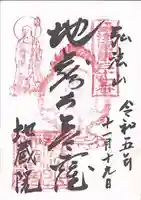 弘法山
令和五年
十一月十九日
地蔵大菩薩
地蔵院